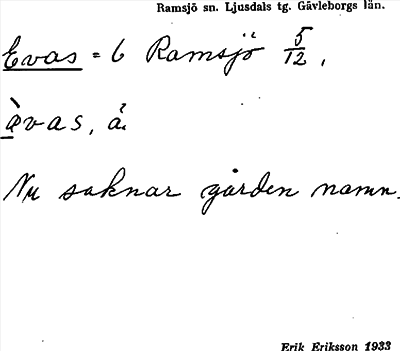 Ramsjö sn. Ljusdals tg. Gävleborgs län.
Evas = 6 Ramsjö 5/12,
èvas, å.
Nu saknar gården namn.
Erik Eriksson 1933